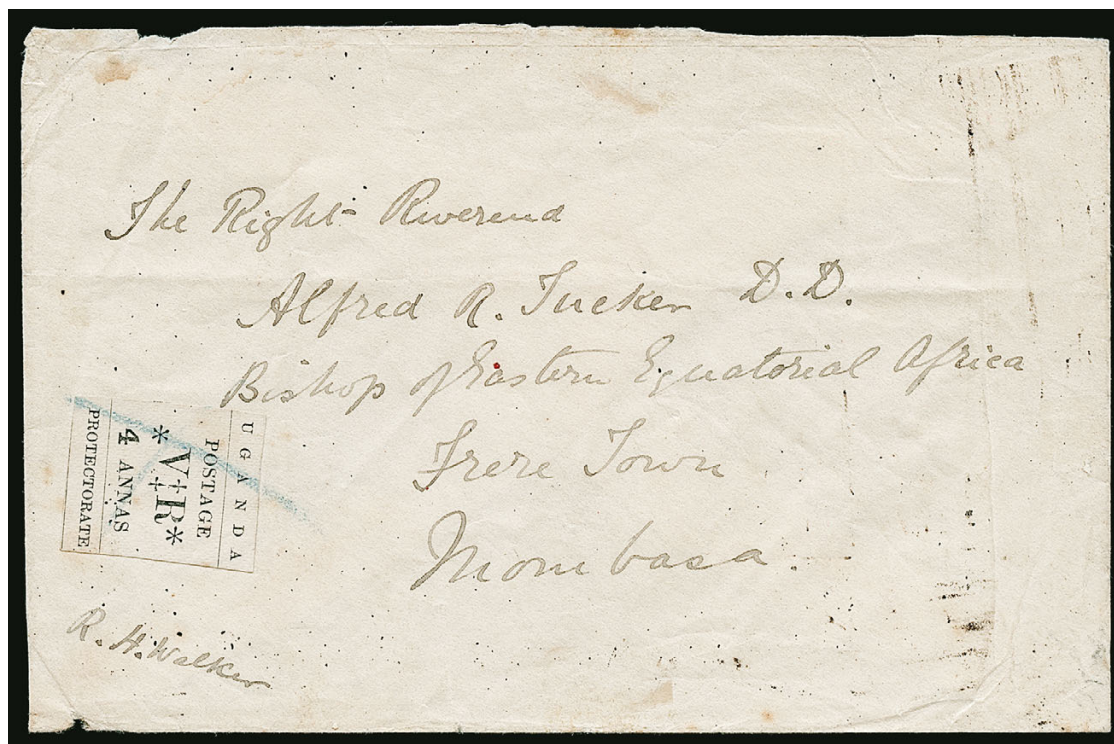 The Right Reverend
Alfred R. Tucker D.D.
Bishop of Eastern Equatorial Africa
Frere Town
Mombasa.
UGANDA
POSTAGE
*V+R*
4 ANNAS
PROTECTORATE
R. H. Walker